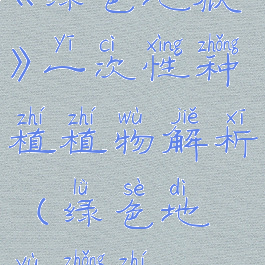 《绿色地狱
yī cì xìng zhǒng
》一次性种
zhí zhí wù jiě xī
植植物解析
lǜ sè dì
（绿色地
yù zhǒng zhí